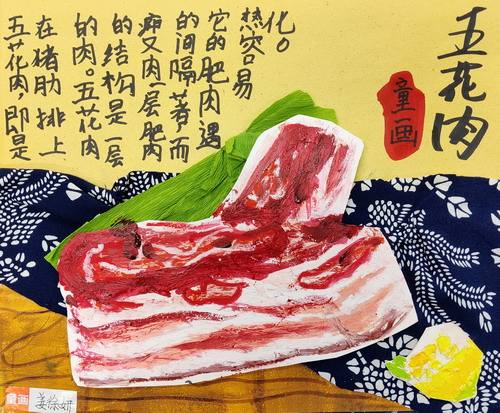 五花肉
童画
五花肉,即是
在猪肋排上
的肉。五花肉
的结构是一层
瘦肉一层肥肉
的间隔著,而
它的肥肉遇
热容易
化。
童画
姜徐妍